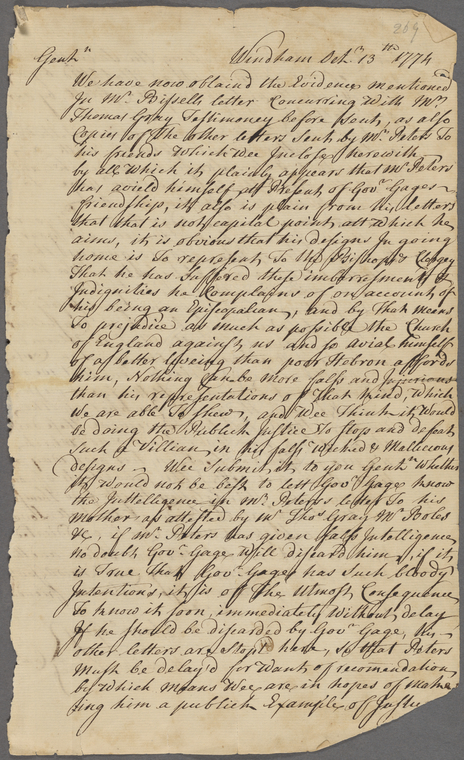 269
Gentn Windham Octr 13th 1774
We have now obtaind the Evidence mentioned
In Mr Bissells letter Concurring With Mr
Thomas Gray Testimoney before Sent, as also
Copies of the other letters Sent by Mr Peters To
his friends Which Wee Inclose herewith
by all Which it plainly appears that Mr Peters
has avield himself att Present of Govr Gages
friendship, it also is plain from his letters
that that is not capital point att Which he
aims, it is obvious that his designs In going
home is To represent To the Bishops & Clergey
That he has Suffered these imbarresments &
Indignities he Complains of on account of
his being an Episcopalian, and by That means
To prejudice as much as possible the Church
of England against us and so aviel himself
of a better liveing than poor Hebron affords
him, Nothing Can be more falss and Injurious
than his representations of That kind, Which
We are able To Shew, and Wee Think it Would
be doing the Publick Justice To Stop and defeat
Such a Villian in his falss Wicked & Mallicious
designs - Wee Submit it to you Gentn Whether
it Would not be best to lett Govr Gage know
the Inttellegence in Mr Peters's letter To his
Mother as attested by Mr Thos Gray Mr Boles
&c, if Mr Peters has given falss Intelligence
no doubt Govr Gage Will discard him, if it
is True That Govr Gage has Such bloody
Intentions, it is off The Utmost Consequence
To know it soon, immediately Without delay
If he Should be discarded by Govr Gage, his
other letters are Stop'd here, So that Peters
Must be delay'd for Want of recomendation
by Which means Wee are in hopes of make
ing him a publick Example of